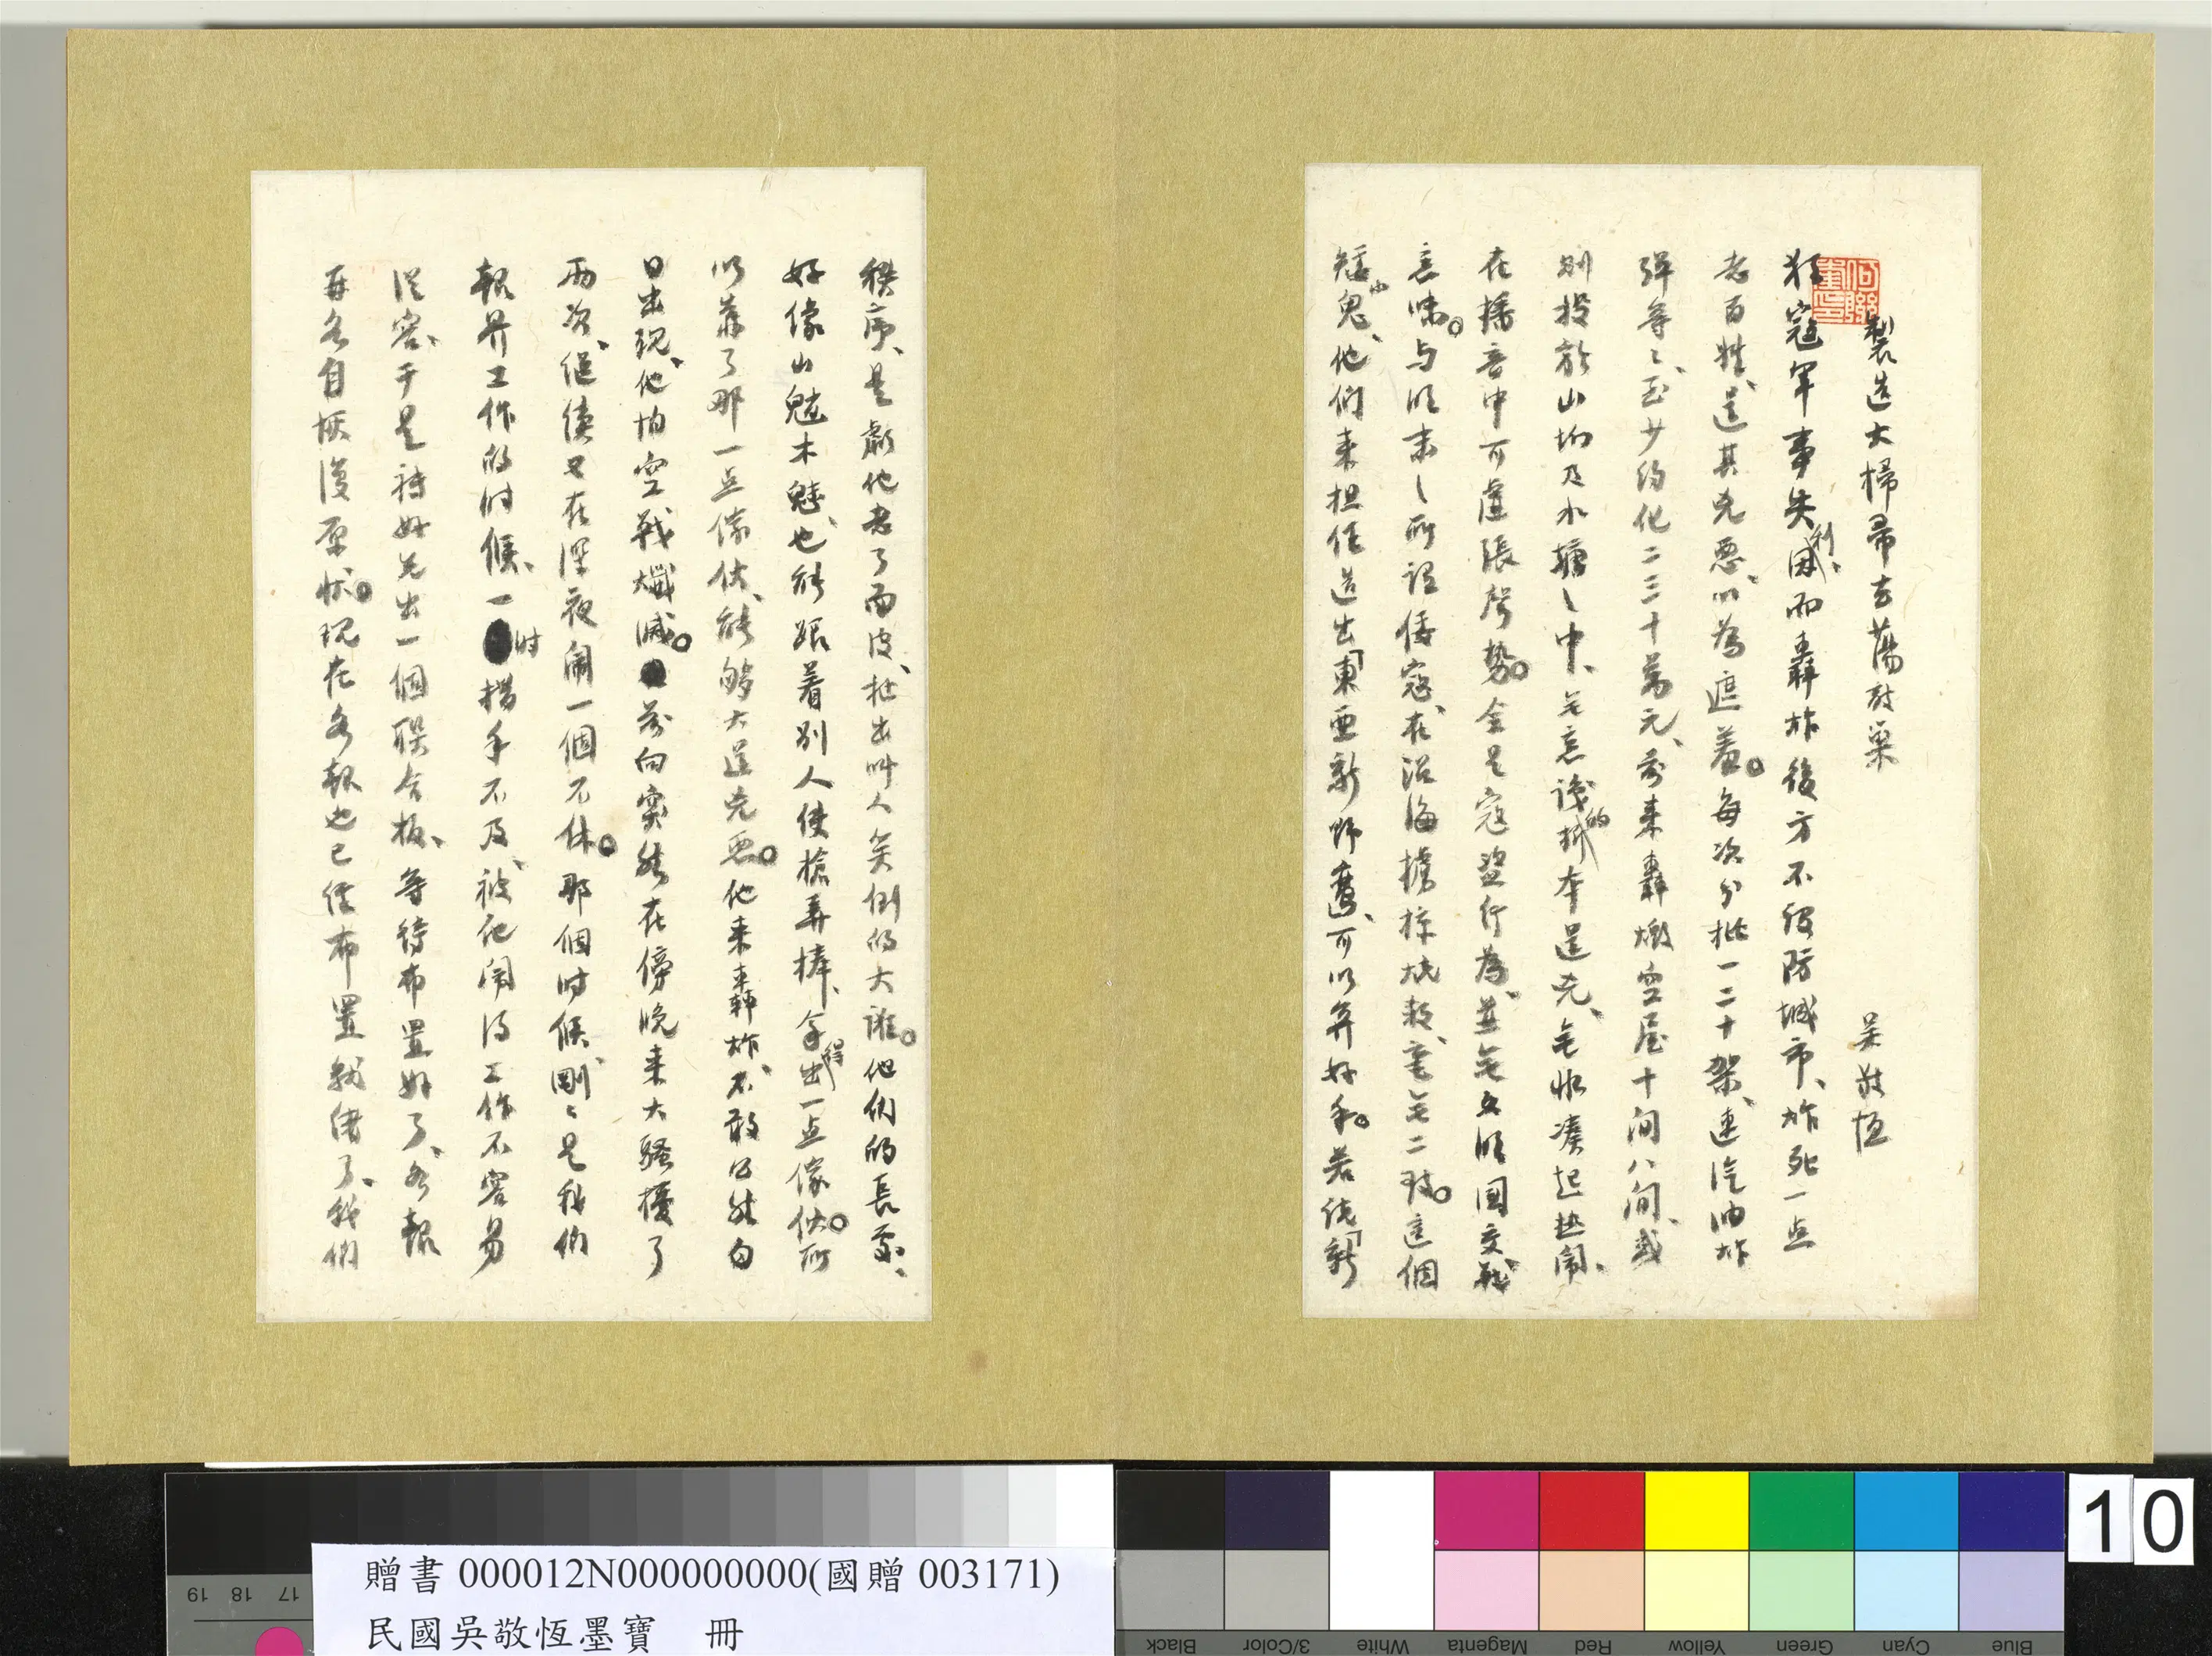 製造大掃帚去蕩敵巢
吳敬恆
狂寇軍事失利，而轟炸後方不設防城市、炸死一点
老百姓、逞其兇惡、以為遮羞。每次分批一二十架、連汽油炸
彈等等、至少約化二三十萬元、前來轟燬空屋十間八間、或
別投於山坳及水塘之中、無意識的拚本逞兇、無非湊起热鬧、
在播音中可虛張聲勢。全是寇盜行為、並無兵明國交戰
意味。与明末之所謂倭寇、在沿海擄掠燒殺、毫無二致。這個
矮小鬼、他們来担任造出「東亞新
可以弄好手。若使「新
秩序」是
他老了面皮、扯出叫人笑倒的大謊。他們的長處、
好像山魈木魅、也能跟着別人使槍弄棒、拿得出一点傢伙。所
以靠了那一点傢伙、能夠大逞兇惡。他来轟炸、不敢公然白
日出現、他怕空戰殲滅。前向突然在傍晚来大騷擾了
兩次、繼續又在深夜鬧一個不休。那個时候、剛剛是我們
報界工作的时候、一时措手不及、被他鬧得工作不容易
從容、于是祗好先出一個聯合板、等待布置好了、各報
再各自恢復原狀。現在各報也已經布置就緒了、我們
贈書 000012N000000000(國贈 003171)
民國吳敬恆墨寶 冊
10
19 18 17
Black 3/Color White Magenta Red Yellow Green Cyan Blue